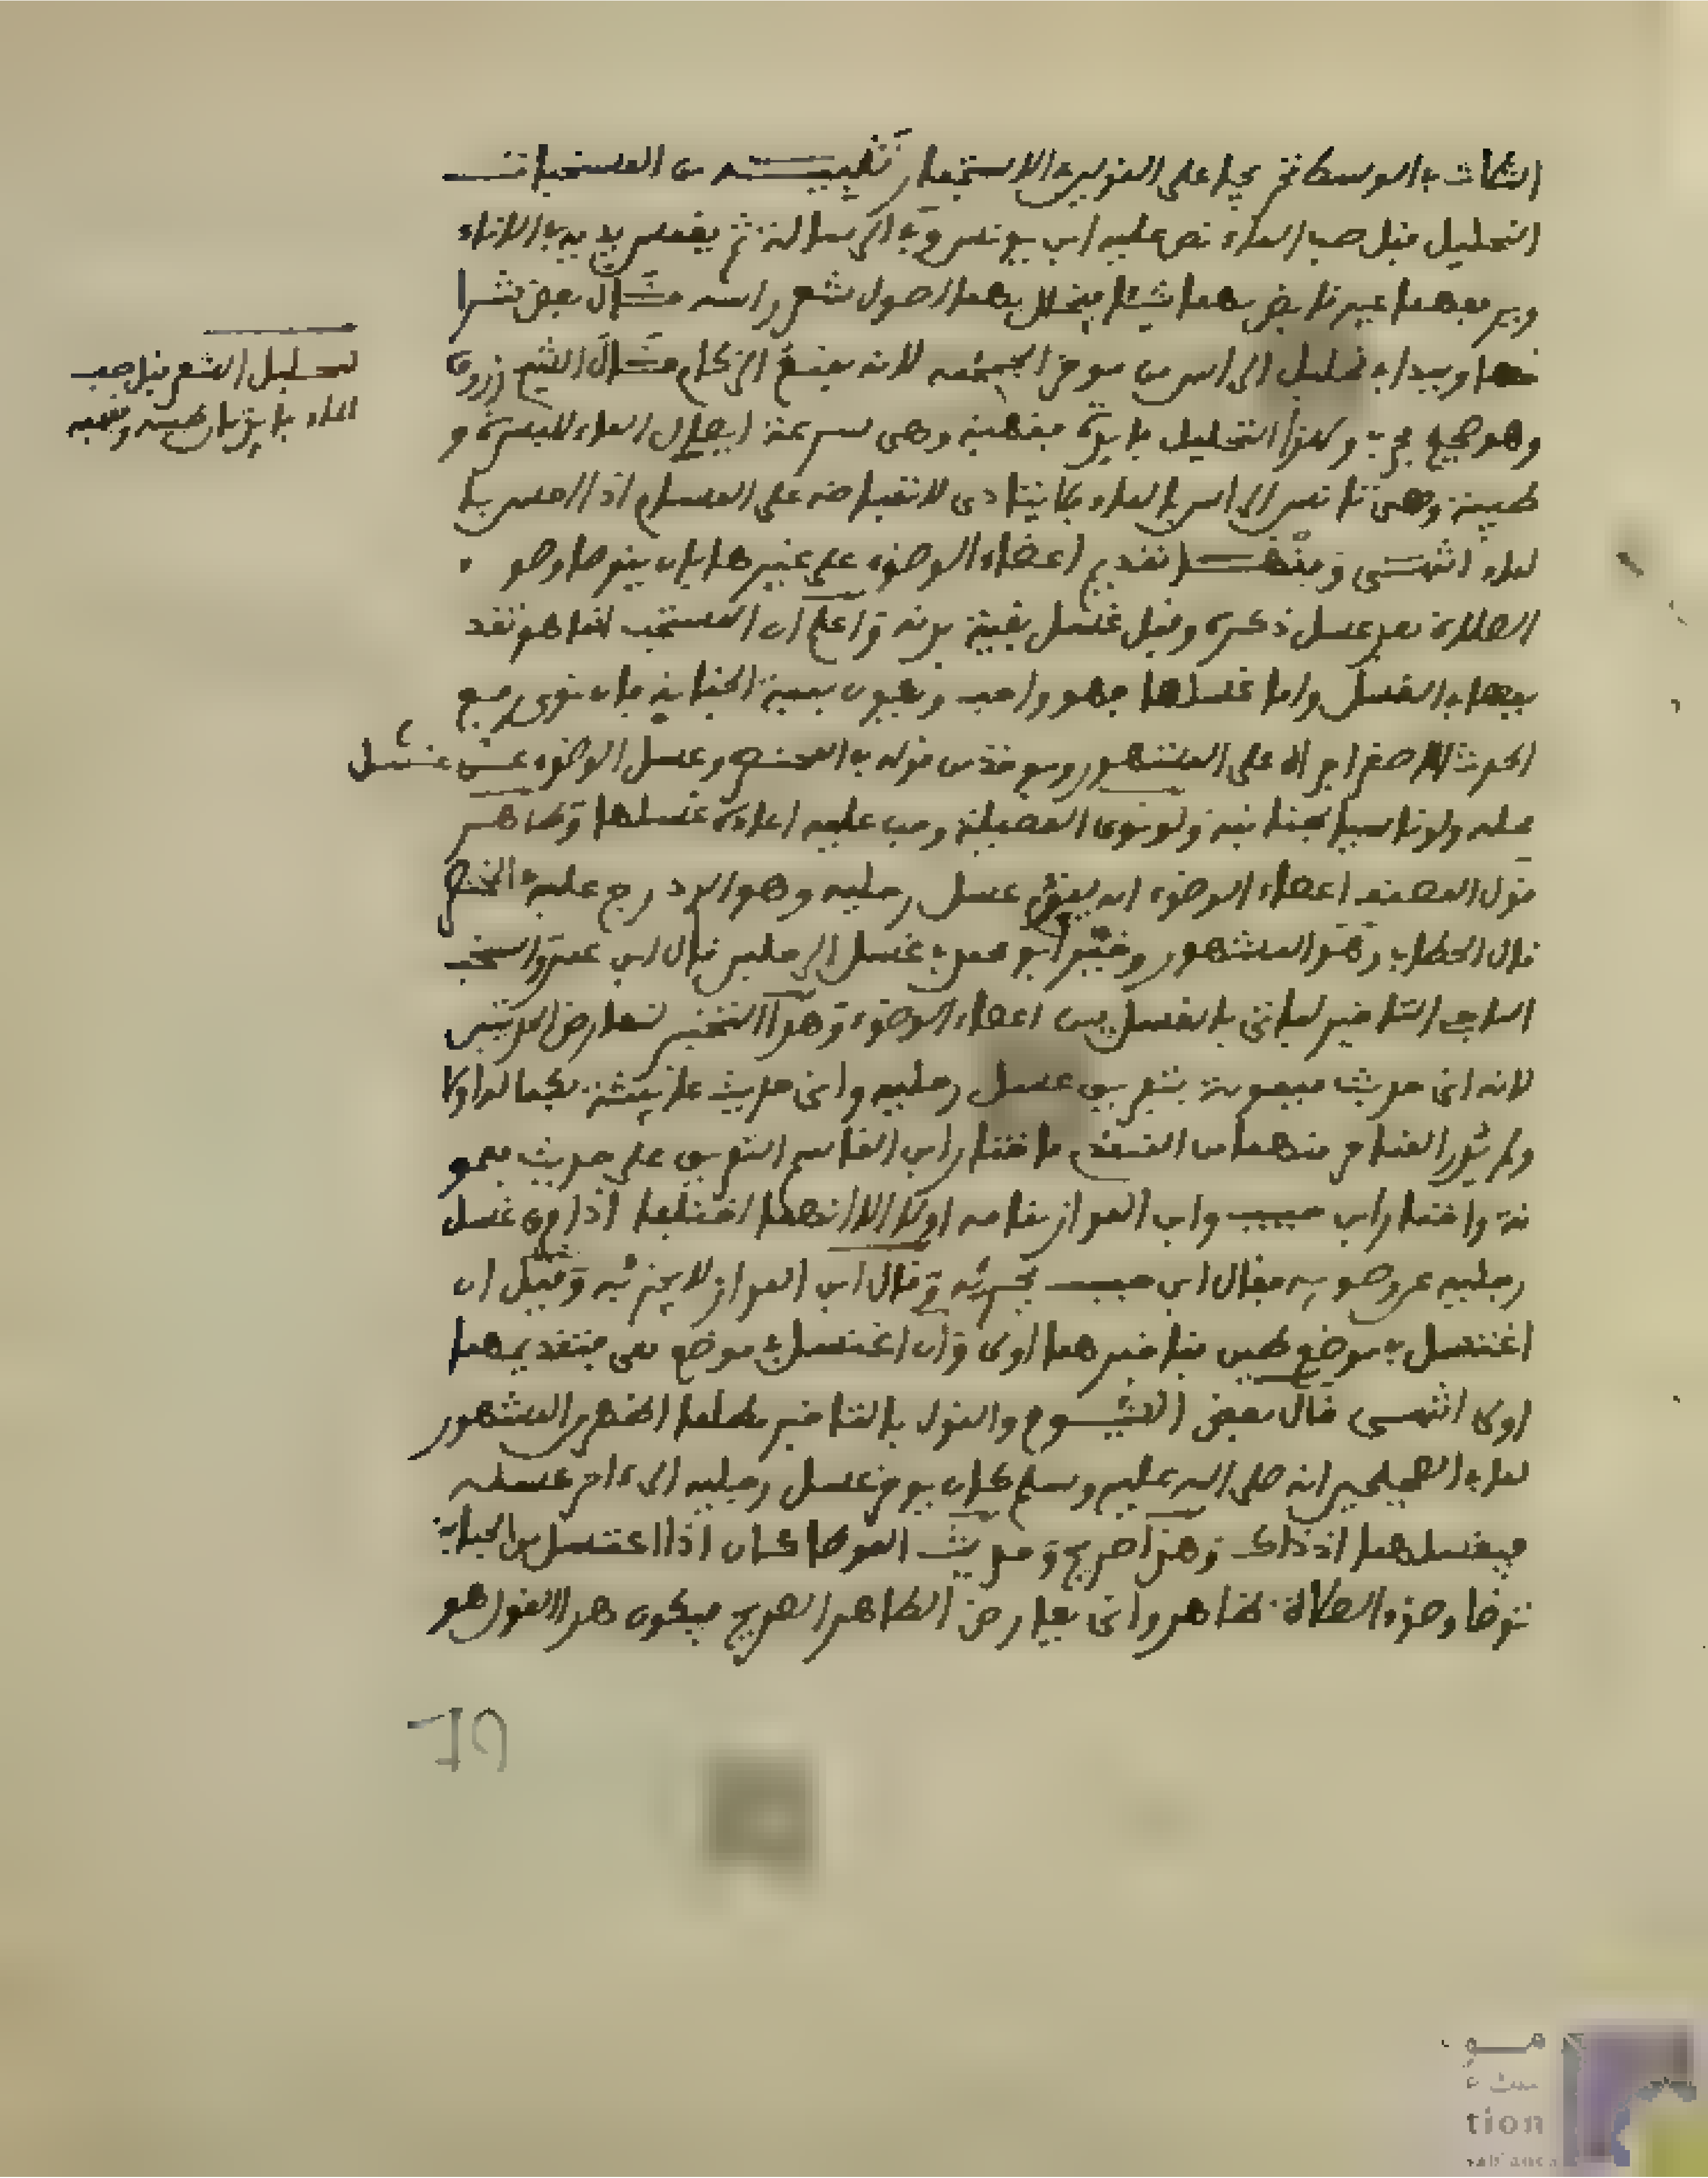 الثلاث بالوسطى ثم يجرى على القولين الاستجمار تنبيه من المستحبات
التخليل قبل صب الماء نص عليه ابن يونس وفي الرسالة ثم يغمس يديه في الاناء
ويرفعهما غير قابض بهما شيئا فيخلل بهما اصول شعر راسه قال بعض شرا
حها ويبدا في تخليل الراس من موخر الجمجمة لانه يمنع الزكام قال الشيخ زروق
وهو صحيح مجرب ولهذا التخليل فايدة فقهية وهي سرعة ايصال الماء للبشرة و
طبية وهي تانس الراس بالماء فلا يتاذى لانقباضه على المسام اذا احس با
لماء انتهى ومنها تقديم اعضاء الوضوء على غيرها بان يتوضا وضو ء
الصلاة بعد غسل ذكره وقبل غسل بقية بدنه واعلم ان المستحب انما هو تقد
يمها في الغسل واما غسلها فهو واجب ويكون بنية الجنابة فان نوى رفع
الحدث الاصغر اجزاه على المشهور ويوخذ من قوله في المختصر وغسل الوضوء عن غسل
محله ولو ناسيا لجنابته ولو نوى الفضيلة وجب عليه اعادة غسلها وظاهر
قول المصنف اعضاء الوضوء انه يقدم غسل رجليه وهو الذي درج عليه في المختصر
قال الحطاب وهو المشهور وخير ابو عمر في غسل الرجلين قال ابن عمر واستحب
الباجي التاخير لياتي بالغسل بين اعضاء الوضوء وهذا التخيير لتعارض الحديثين
لانه اتى حديث ميمونة بتفريق غسل رجليه واتى حديث عائشة بكمالها اولا
ولم يدر المتاخر منهما من المتقدم فاختار ابن القاسم التفريق على حديث ميمو
نة واختار ابن حبيب وابن المواز تمامه اولا الا انهما اختلفا اذا فرق غسل
رجليه عن وضوئه فقال ابن حبيب يجزئه وقال ابن المواز لا يجزئه وقيل ان
اغتسل في موضع طين فتاخيرهما اولى وان اغتسل في موضع نقي فتقديمهما
اولى انتهى قال بعض الشيوخ والقول بالتاخير مطلقا اظهر من المشهور
لما في الصحيحين انه صلى الله عليه وسلم كان يوخر غسل رجليه الى ءاخر غسله
فيغسلهما اذ ذاك وهذا صريح وحديث الموطا كان اذا اغتسل من الجنابة
توضا وضوء الصلاة ظاهر وانى يعارض الظاهر الصريح فيكون هذا القول هو
تخليل الشعر قبل صب
الماء فايدتان طبية وفقهية
مو
tion